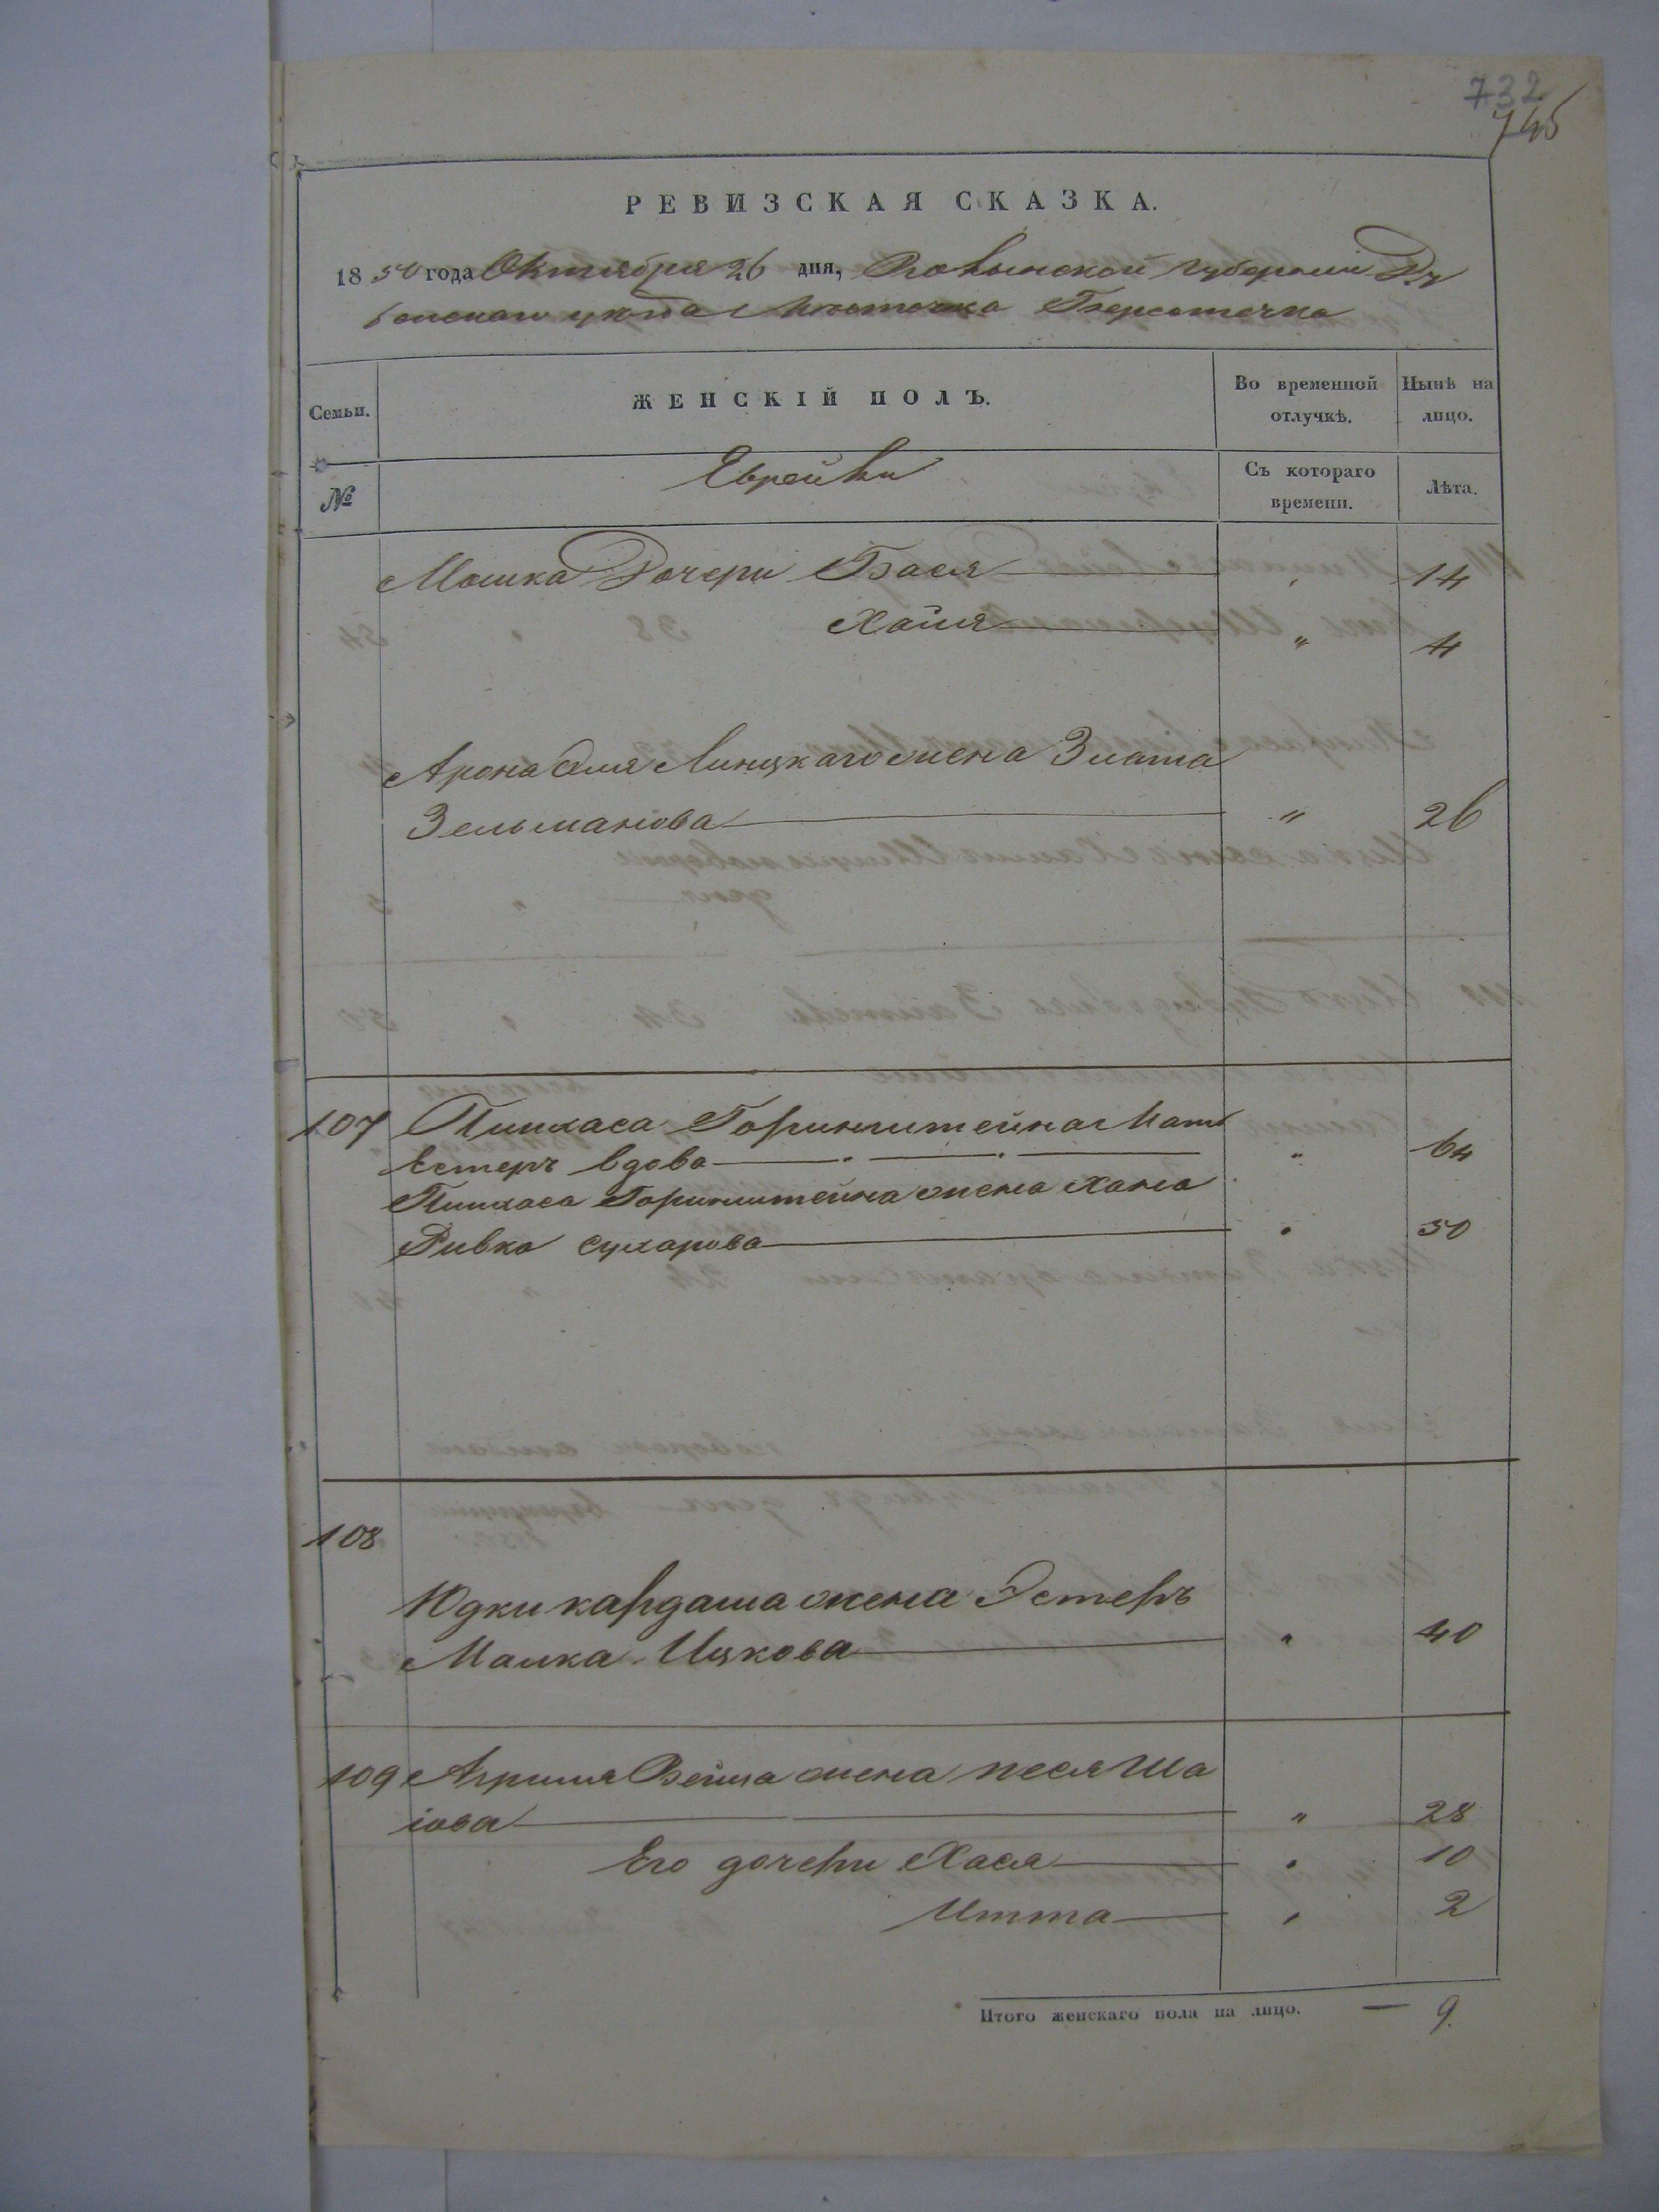 732
745
РЕВИЗСКАЯ СКАЗКА.
1850 года Октября 26 дня, Волынской Губернии Ду
бенскаго уезда Местечка Берестечка
Семьи.
ЖЕНСКІЙ ПОЛЪ.
Во временной отлучкѣ.
Нынѣ на лицо.
№
Еврейки
Съ котораго времени.
Лѣта.
Мошка Дочери Бася " 14
Хайя " 4
Арона Линцкаго жена Злата
Зельманова " 26
107 Пинхаса Горинштейна Мать
Естеръ вдова " 64
Пинхаса Горинштейна жена Хана
Ривка Сухарова " 50
108
Юдки Кардаша жена Эстеръ
Малка Ицкова " 40
109 Вейца жена Песя Ша
іова " 28
Его дочери Хася " 10
Итта " 2
Итого женскаго пола на лицо. — 9.